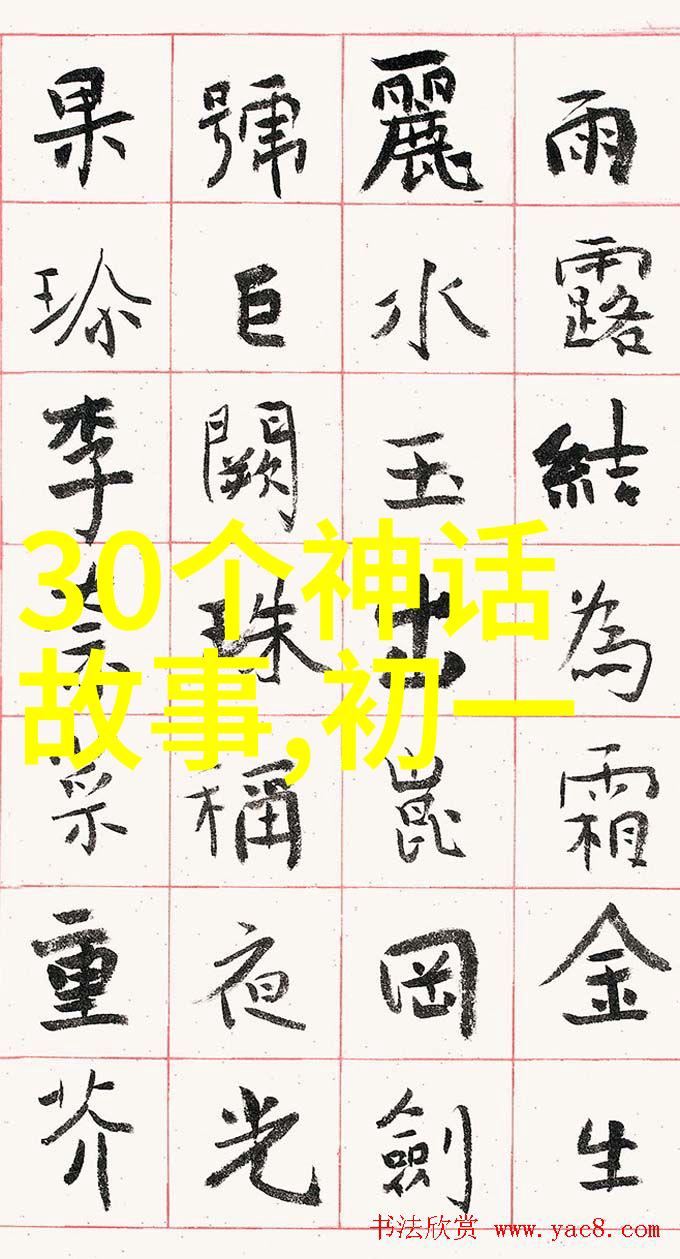 雨露結為霜金生
麗水玉出崑岡劍
號巨闕珠稱夜光
果珎李柰菜重芥
30个神话
故事,初一
书法欣赏 www.yac8.com